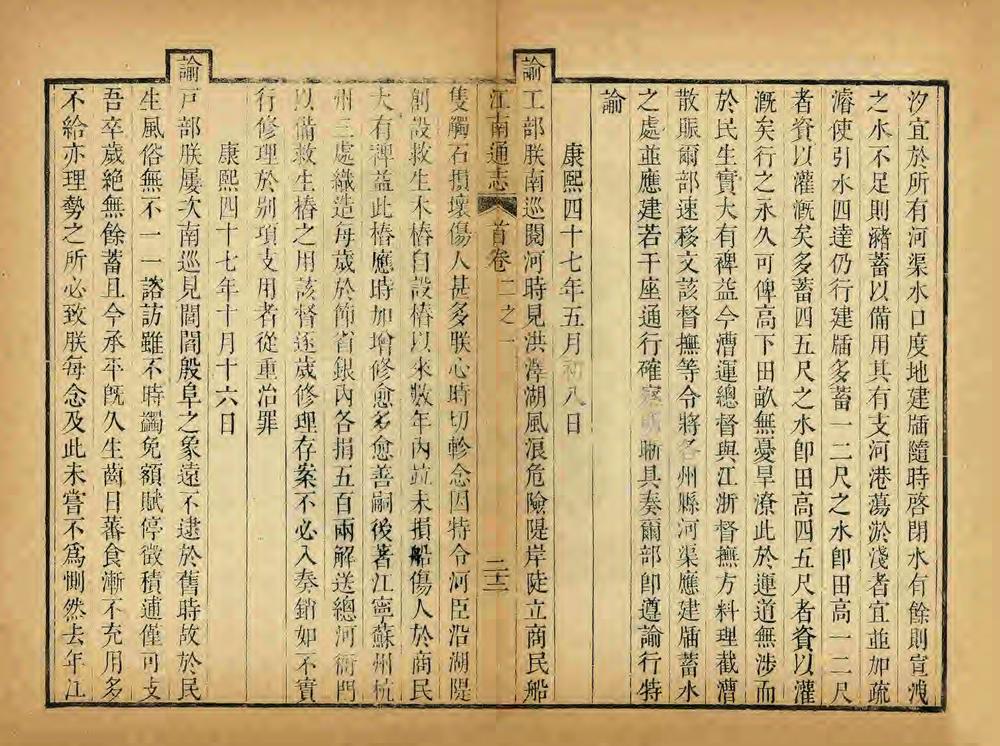 汐宜於所有河渠水口度地建牐隨時啓閉水有餘則宣洩
之水不足則瀦蓄以備用其有支河港蕩淤淺者宜並加疏
濬使引水四達仍行建牐多蓄一二尺之水卽田高一二尺
者資以灌漑矣多蓄四五尺之水卽田高四五尺者資以灌
漑矣行之永久可俾高下田畝無憂旱潦此於運道無涉而
於民生實大有裨益今漕運總督與江浙督撫方料理截漕
散賑爾部速移文該督撫等令將各州縣河渠應建牐蓄水
之處並應建若干座通行確察晰具奏爾部卽遵諭行特
諭
康熙四十七年五月初八日
諭工部朕南巡閱河時見洪澤湖風浪危險隄岸陡立商民船
江南通志 首卷二之一 二十三
隻觸石損壞傷人甚多朕心時切軫念因特令河臣沿湖隄
創設救生木樁自設樁以來數年內竝未損船傷人於商民
大有裨益此樁應時加增修愈多愈善嗣後著江寧蘇州杭
州三處織造每歲於節省銀內各捐五百兩解送總河衙門
以備救生樁之用該督逐歲修理存案不必入奏銷如不實
行修理於別項支用者從重治罪
康熙四十七年十月十六日
諭戶部朕屢次南巡見閭閻殷阜之象遠不逮於舊時故於民
生風俗無不一一諮訪雖不時蠲免額賦停徵積逋僅可支
吾卒歲絶無餘蓄且今承平旣久生齒日蕃食漸不充用多
不給亦理勢之所必致朕每念及此未嘗不爲惻然去年江